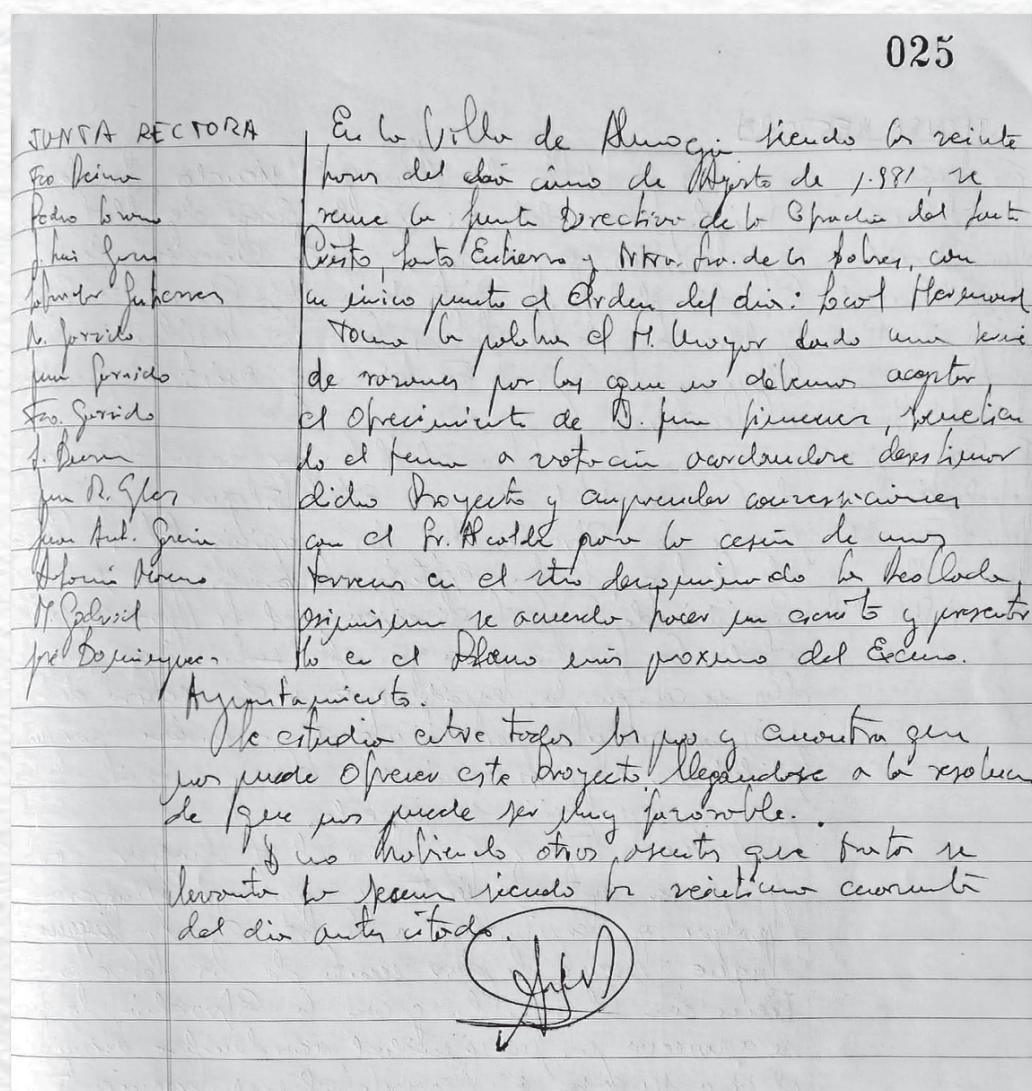 025
JUNTA RECTORA
Fco Reina
Pedro
J. Luis
Salvador Gutierrez
A. Garrido
Juan Garrido
Fco. Garrido
J.
Juan R. Glez
Juan Ant. García
Antonio Moreno
M. Gabriel
José Dominguez
En la Villa de Almogía siendo las veinte
horas del día cinco de Agosto de 1.981, se
reune la Junta Directiva de la Cofradía del Santo
Cristo, Santo Entierro y Ntra. Sra. de los Dolores, con
un único punto el Orden del día: Local Hermandad
Toma la palabra el H. Mayor dando una serie
de razones por las que no debemos aceptar,
el Ofrecimiento de D. Juan Jimenez, sometien
do el tema a votación acordandose desestimar
dicho Proyecto y emprender conversaciones
con el Sr. Alcalde para la cesión de unos
terrenos en el sitio denominado La Deollada,
asimismo se acuerda hacer un escrito y presentar
lo en el Pleno más proximo del Excmo.
Ayuntamiento.
Se estudia entre todos los pro y encontra que
nos puede Ofrecer este Proyecto llegándose a la
de que nos puede ser muy favorable.
Y no habiendo otros asuntos que tratar se
levanta la sesion siendo las veintiuna cuarenta
del dia antes citado.